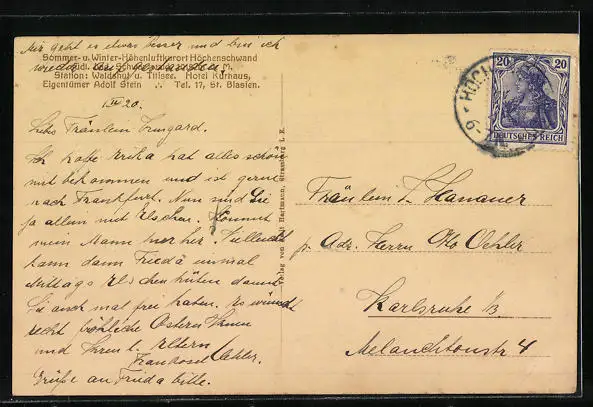 Mir geht es etwas besser und bin ich
Sommer- u. Winter-Höhenluftkurort Höchenschwand
Station: Waldshut u. Titisee. Hotel Kurhaus,
Eigentümer Adolf Stein Tel. 17, St. Blasien.
20.
Liebs Fräulein Irmgard.
Ich hoffe Erika hat alles schön
mit bekommen und ist gerne
nach Frankfurt. Nun sind Sie
ja allein mit Elschen. Kommt
mein Mann hier her? Vielleicht
kann dann Frieda einmal
Mittags Elschen hüten damit
Sie auch mal frei haben. Es wünscht
recht fröhliche Ostern Ihnen
und Ihren l. Eltern
Frau Rosel Oehler.
Grüße an Frieda bitte.
Verlag von Hartmann, Strassburg i. E.
20 20
DEUTSCHES REICH
HÖCH
Fräulein I. Hanauer
p. Adr. Herrn Otto Oehler
Karlsruhe i/B.
Melanchtonstr 4